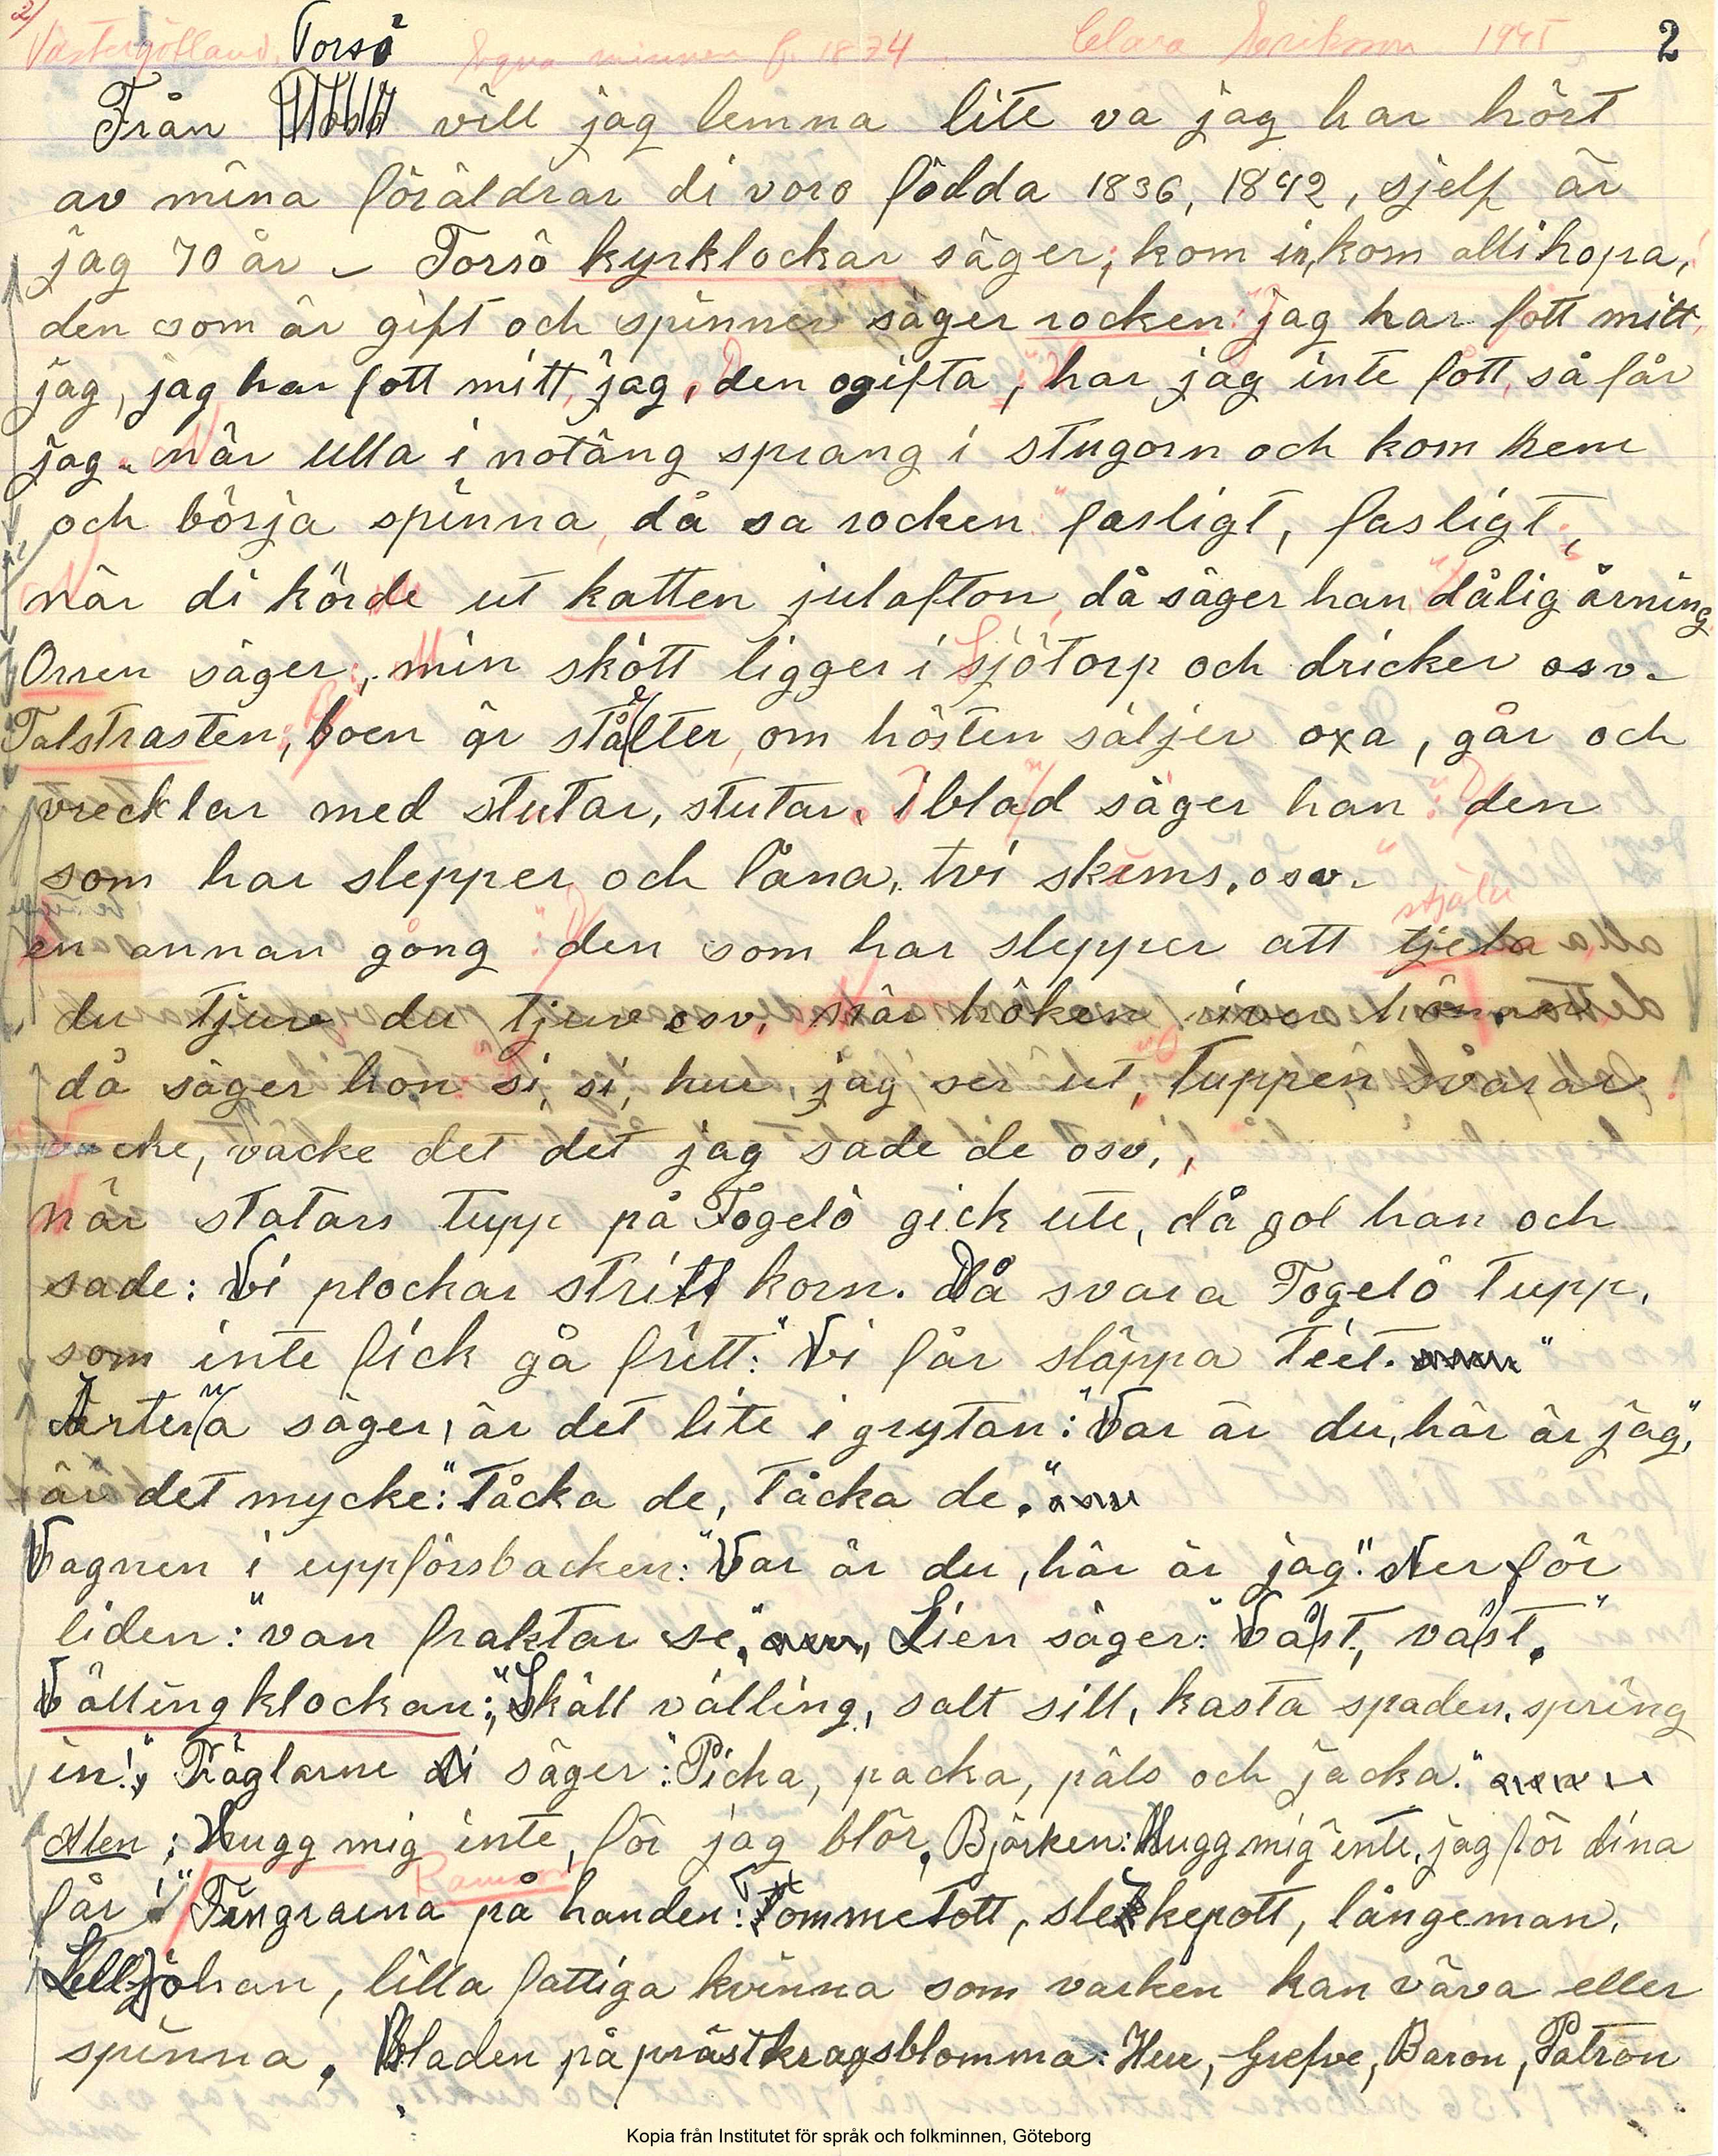 2) Västergötland. Torsö Egna minnen f. 1874 Clara Eriksson 1945 2
Från vill jag lemna lite va jag har hört
av mina föräldrar di voro födda 1836, 1842, sjelf är
jag 70 år – Torsö kyrklockar säger; kom in, kom allihopa,
den som är gift och spinner säger rocken: jag har fott mitt,
jag, jag har fott mitt, jag, den ogifta, har jag inte fott, så får
jag. När ulla i notäng sprang i stugorn och kom hem
och börja spinna, då sa rocken fasligt, fasligt,
när di körde ut katten julafton, då säger han dålig årning
Orren säger; min skött ligger i Sjötorp och dricker osv.
Talstrasten; boen är ståLter, om hösten säljer oxa, går och
vrecklar med stutar, stutar. iblad säger han: den
som har slepper och låna, tvi skems, osv.
en annan gång: den som har slepper att tjela stjäla
du tjuv du tjuv osv. när höken river hönan
då säger hon: si, si, hur jag ser ut, tuppen svarar
väcke det det jag sade de osv,,
När statars tupp på Fogelö gick ute, då gol han och
sade: Vi plockar stritt korn. Då svara Fogelö tupp,
som inte fick gå fritt: "Vi får släppa teet."
Ärterna säger, är det lite i grytan: "Var är du, här är jag",
är det mycke: "Tåcka de, Tåcka de."
Vagnen i uppförsbacken: "Var är du, här är jag". Ner för
liden: "van fraktar se", Lien säger: "Vasst, vasst."
Vällingklockan: "Skåll välling, salt sill, kasta spaden, spring
in!", Fåglarne säger: "Picka, packa, päls och jacka."
Alen; Hugg mig inte, för jag blör. Björken: Hugg mig inte, jag för dina
får!" Fingrarna på handen: Ramsor Tommetott, slekepott, långeman,
Lelljohan, lilla fattiga kvinna som varken kan väva eller
spinna. Bladen på prästkragsblomma: Herr, Grefve, Baron, Patron
Kopia från Institutet för språk och folkminnen, Göteborg